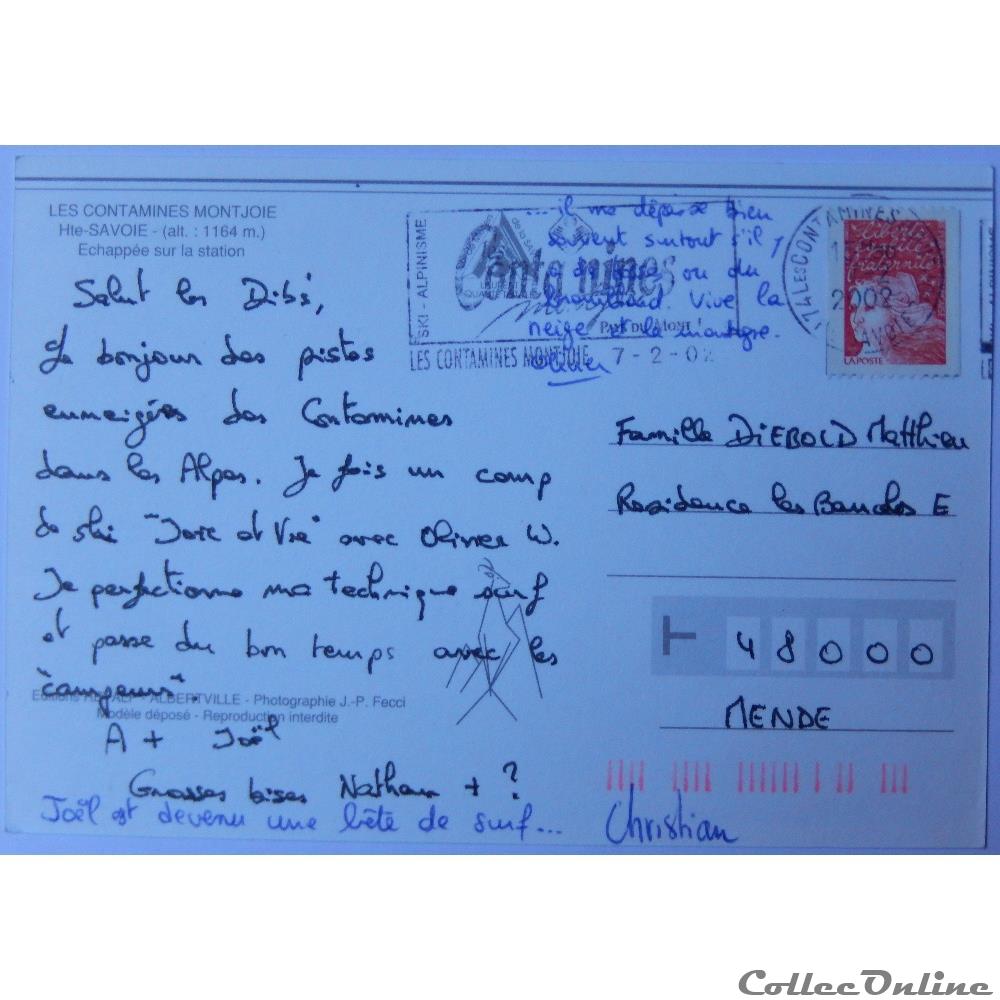 LES CONTAMINES MONTJOIE
Hte-SAVOIE - (alt. : 1164 m.)
Echappée sur la station
Salut les Dibs,
Le bonjour des pistes
enneigées des Contamines
dans les Alpes. Je fais un camp
de ski "Joie et Vie" avec Olivier W.
Je perfectionne ma technique surf
et passe du bon temps avec les
"campeurs".
Editions - ALBERTVILLE - Photographie J.-P. Fecci
Modèle déposé - Reproduction interdite
A + Joël
Grosses bises Nathan + ?
Joël est devenu une bête de surf...
... il me dépasse bien
souvent surtout s'il y
a ou du
Vive la
neige et la montagne.
Olivier
Christian
SKI - ALPINISME
PAYS DU MONT
LES CONTAMINES MONTJOIE 7-2-02
74 LES CONTAMINES
2002
SAVOIE
liberté
égalité
fraternité
LA POSTE
Famille DIEBOLD Matthieu
Residence les E
48000
MENDE
CollecOnline